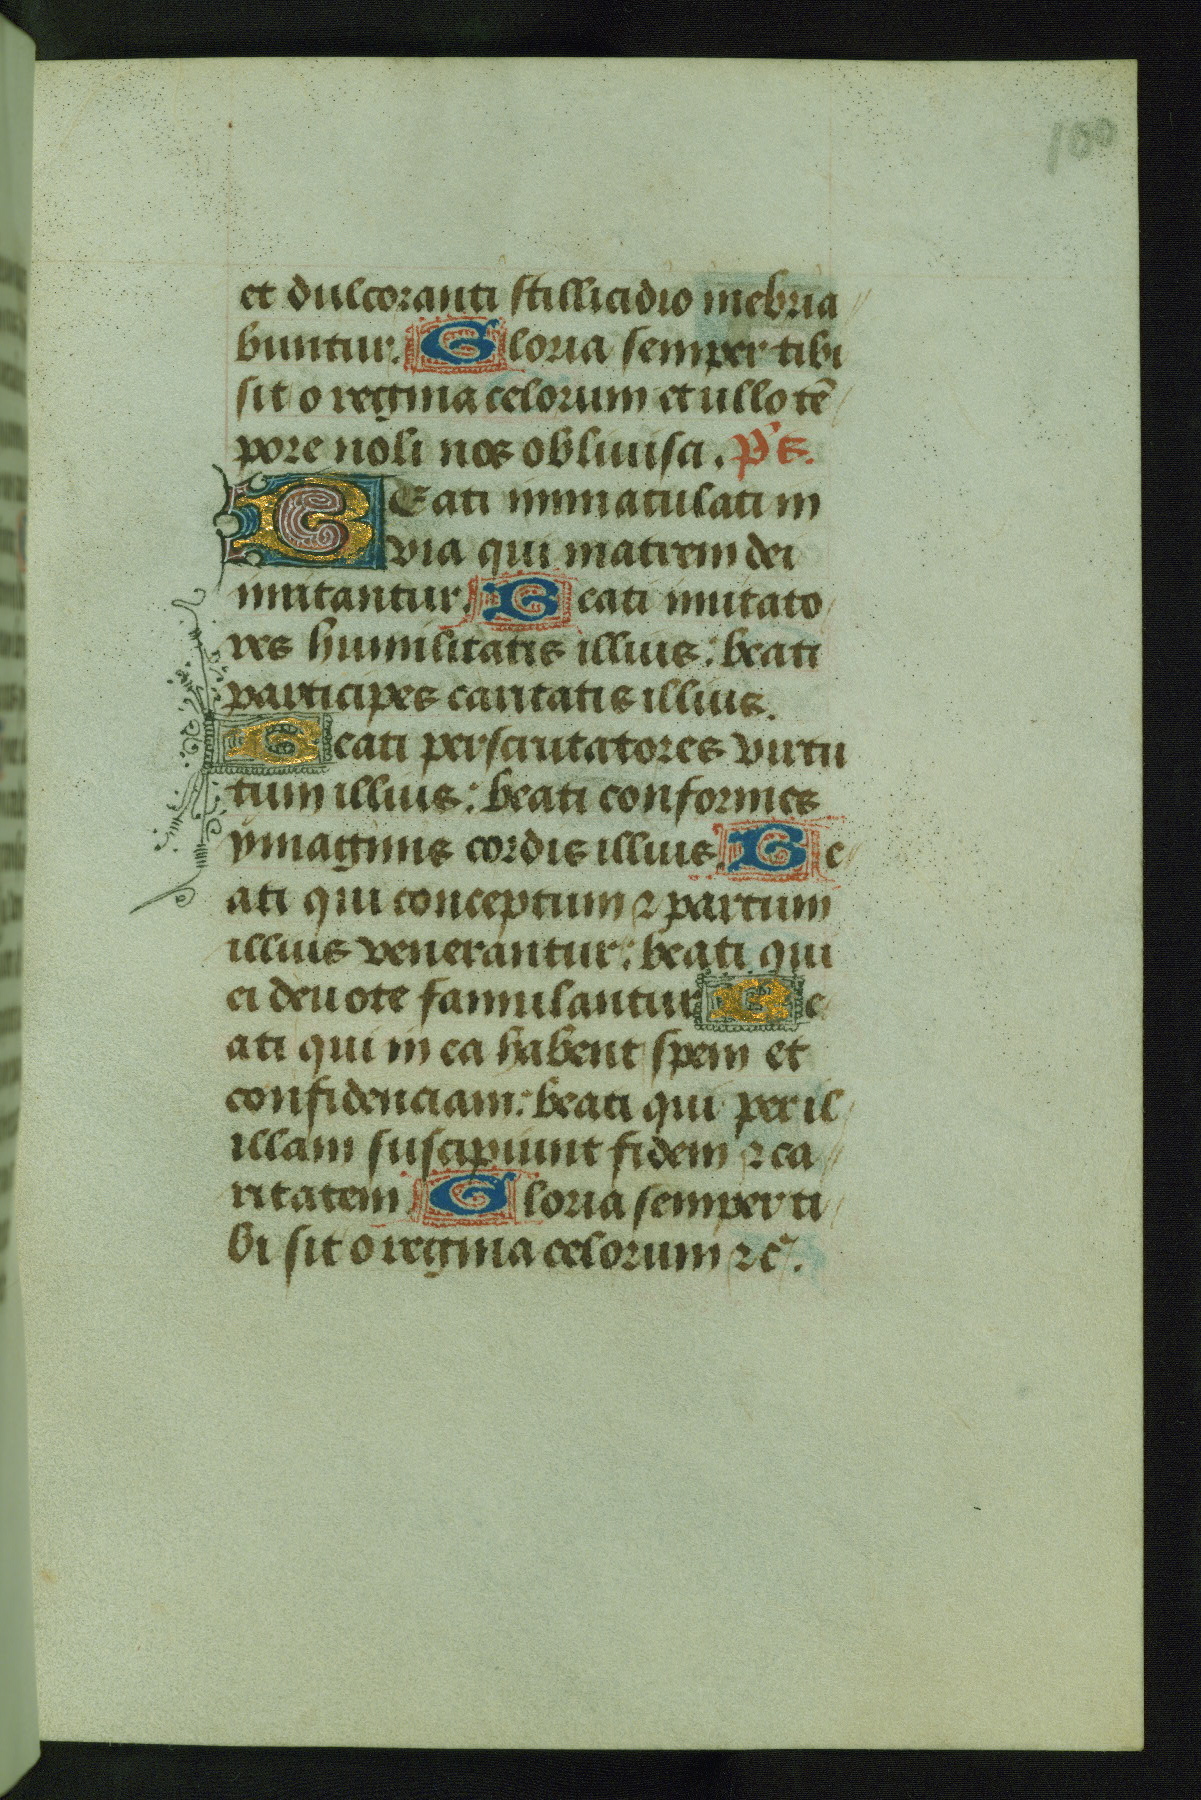 100
et dulcoranti stillicidio inebria
buntur. Gloria semper tibi
sit o regina celorum et ullo tē
pore noli nos oblivisci. p̄s.
BEati immaculati in
via qui matrem dei
imitantur. Beati imitato
res humilitatis illius: beati
participes caritatis illius.
Beati perscrutatores virtu
tum illius: beati conformes
ymaginis cordis illius. Be
ati qui conceptum ⁊ partum
illius venerantur: beati qui
ei devote famulantur Be
ati qui in ea habent spem et
confidenciam: beati qui per il
illam suscipiunt fidem ⁊ ca
ritatem. Gloria semper ti
bi sit o regina celorum ⁊c̃.